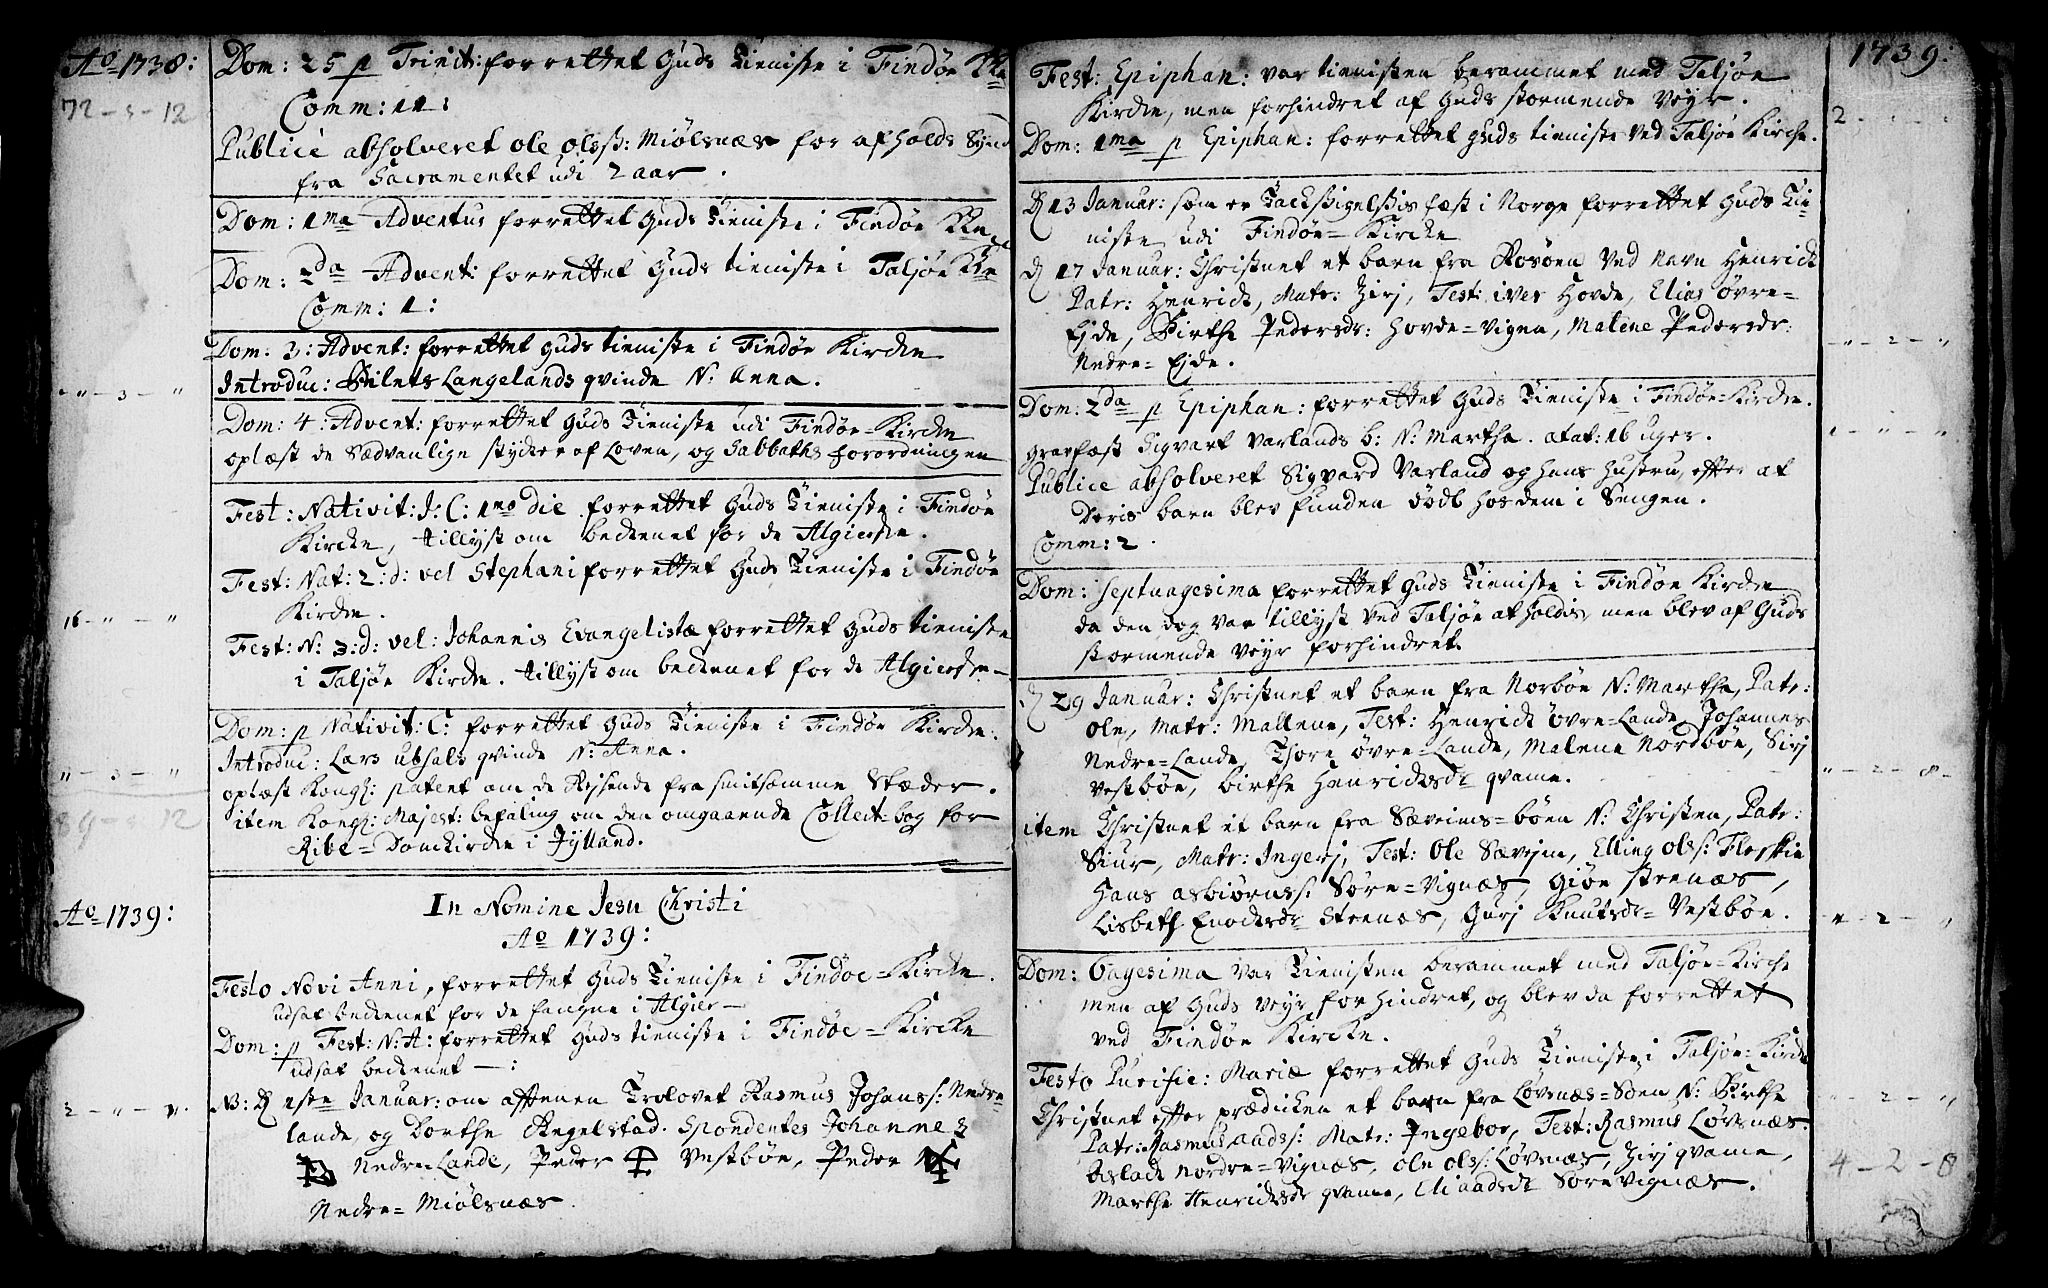 Ao 1738:
72-3-12
Dom: 25 p Trinit: forrettet Guds Tieniste i Findøe Kke
Comm: 11:
Publicè absolveret Ole Olss: Miölsnæs for afholds Synd
fra Sacramentet udi 2 aar.
Dom: 1ma Adventus forrettet Guds Tieniste i Findöe Kke
Dom: 2da Advent: forrettet Guds tieniste i Taljöe Kke
Comm: 1:
Dom: 3: Advent: forrettet Guds tieniste i Findöe Kircke
Introduc: Langelands qvinde N: Anna.
" - 3 - "
Dom: 4: Advent: forrettet Guds Tieniste udi Findöe=Kircke
oplæst de Sædvanlige stycker af Loven, og Sabbaths forordningen
Fest: Nativit: J: C: 1mo die forrettet Guds Tieniste i Findöe
Kircke, tillyst om beckenet for de Algierske.
Fest: Nat: 2: d: vel Stephani forrettet Guds Tieniste i Findöe
Kircke.
16 - " - "
Fest: N: 3: d: vel: Johannis Evangelistæ forrettet Guds tieniste
i Taljöe Kircke. tillyst om beckenet for de Algierske
Dom: p Nativit: C: forrettet Guds Tieniste i Findöe Kircke.
Introduc: Lars Udsals qvinde N: Anna.
" - 3 - "
oplæst Kongl: patent om de Reisende fra smitsomme Stæder.
item Kongl: Majest: befaling om den omgaaende Collect=bog for
89-3-12
Ribe=Domkircke i Jylland.
In Nomine Jesu Christi
Ao 1739:
Ao 1739:
Festo Novi Anni, forrettet Guds Tieniste i Findöe=Kircke.
udsat beckenet for de fangne i Algier
Dom: p Fest: N: A: forrettet Guds tieniste i Findöe=Kircke
udsat beckenet :
NB: D 1ste Januar: om afftenen Trolovet Rasmus Johanss: Nedre-
2 - " - "
lande, og Dorthe Rngelstad. Spondentes Johannes
Nedre=Lande, Peder Vestböe, Peder
Nedre=Miölsnæs.
1739:
Fest: Epiphan: var tienisten berammet med Taljöe
Kircke, men forhindret af Guds stormende Veyr.
2 - " - "
Dom: 1ma p Epiphan: forrettet Guds tieniste ved Taljöe Kirche.
D 13 Januar: som er Tacksigelsis fæst i Norge forrettet Guds Tie-
niste udi Findöe=Kircke
D 17 Januar: Christnet et barn fra Rosöen ved Navn Henrick
Patr: Henrich, Matr: Zirj, Test: iver Hovde, Elias øvre=
Ejde, Birthe Pedersdr: Hovde=Vigen, Malene Pedersdr:
Nedre=Ejde.
" - 2 - "
Dom: 2da p Epiphan: forrettet Guds Tieniste i Findöe=Kircke.
gravfæst Sigvart Varlands b: N: Martha. ætat: 16 uger.
1 - " - "
Publice absolveret Sigvard Varland og hans Hustru, effter at
Deris barn blev funden död hos dem i Sengen.
Comm: 2.
Dom: Septuagesima forrettet Guds Tieniste i Findöe Kircke
da den dag var tillyst ved Taljöe at holdis, men blev af Guds
stormende veyr forhindret.
D 29 Januar: Christnet et barn fra Norböe N: Martha, Patr:
Ole, Matr: Mallene, Test: Henrich Øvre=Lande, Johannes
Nedre=Lande, Thore øvre=Lande, Malene Nordböe, Sirj
Vestböe, birthe Henricksdr qvame.
" - 2 - 8
item Christnet et barn fra Sæveims=böen N: Christen, Patr:
Siur, Matr: Ingerj, Test: Ole Sævejm, Elling Olss:
Hans Asbiörnss: Söre=Vignæs, Giöe Steenæs,
Lisbeth Enochsdr Steenæs, Gurj Knutsdr=Vestböe.
" - 2 - "
Dom: 6agesima var Tienisten berammet med Taljöe=Kirche
men af Guds veyr forhindret, og blev da forrettet
ved Findöe Kircke.
Festo Purific: Mariæ forrettet Guds Tieniste i Taljöe: Kircke
Christnet effter prædicken et barn fra Lövsnæs=Söen N: Birthe
" - 2 - "
Patr: Rasmus aadss: Matr: Ingebor, Test: Rasmus Lövsnæs
Aslack Nordre=Vignæs, Ole Olss: Lövsnæs, Zirj qvame,
4 - 2 - 8
Marthe Henricksdr qvame, Eli aadsdr Söre Vignæs.